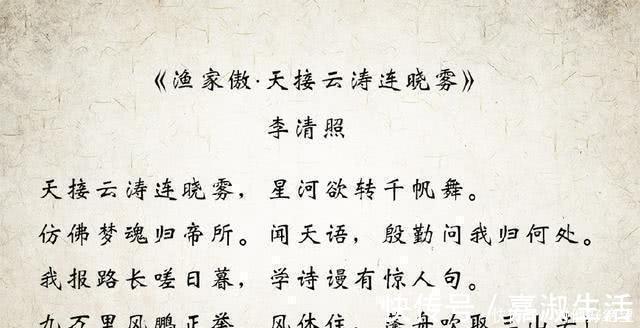 《渔家傲·天接云涛连晓雾》
李清照
天接云涛连晓雾，星河欲转千帆舞。
仿佛梦魂归帝所。闻天语，殷勤问我归何处。
我报路长嗟日暮，学诗谩有惊人句。
九万里风鹏正举。风休住，蓬舟吹取三山去！
快传号／嘉淑生活